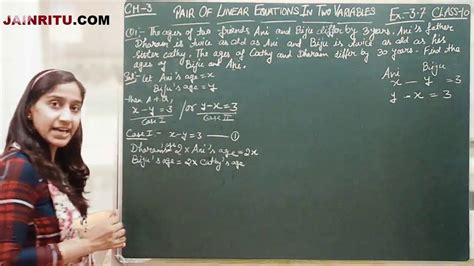 JAINRITU.COM
CH-3 PAIR OF LINEAR EQUATIONS IN TWO VARIABLES Ex-3.7 CLASS-10
Q1:- The ages of two friends Ani and Biju differ by 3 years. Ani's father
Dharam is twice as old as Ani and Biju is twice as old as his
sister Cathy. The ages of Cathy and Dharam differ by 30 years. Find the
ages of Biju and Ani.
Sol:- Let Ani's age = x
Biju's age = y
then A.T.Q,
x-y=3 / or y-x=3
Case I Case II
Case I:- x-y=3 — ①
Dharam's age = 2 x Ani's age = 2x
Biju's age = 2x Cathy's age
Ani Biju
x - y = 3
y - x = 3